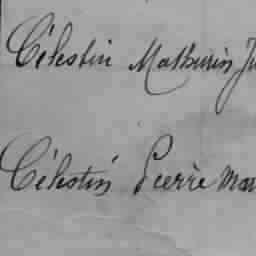 Célestin Mathurin Ju
Célestin Pierre Mar